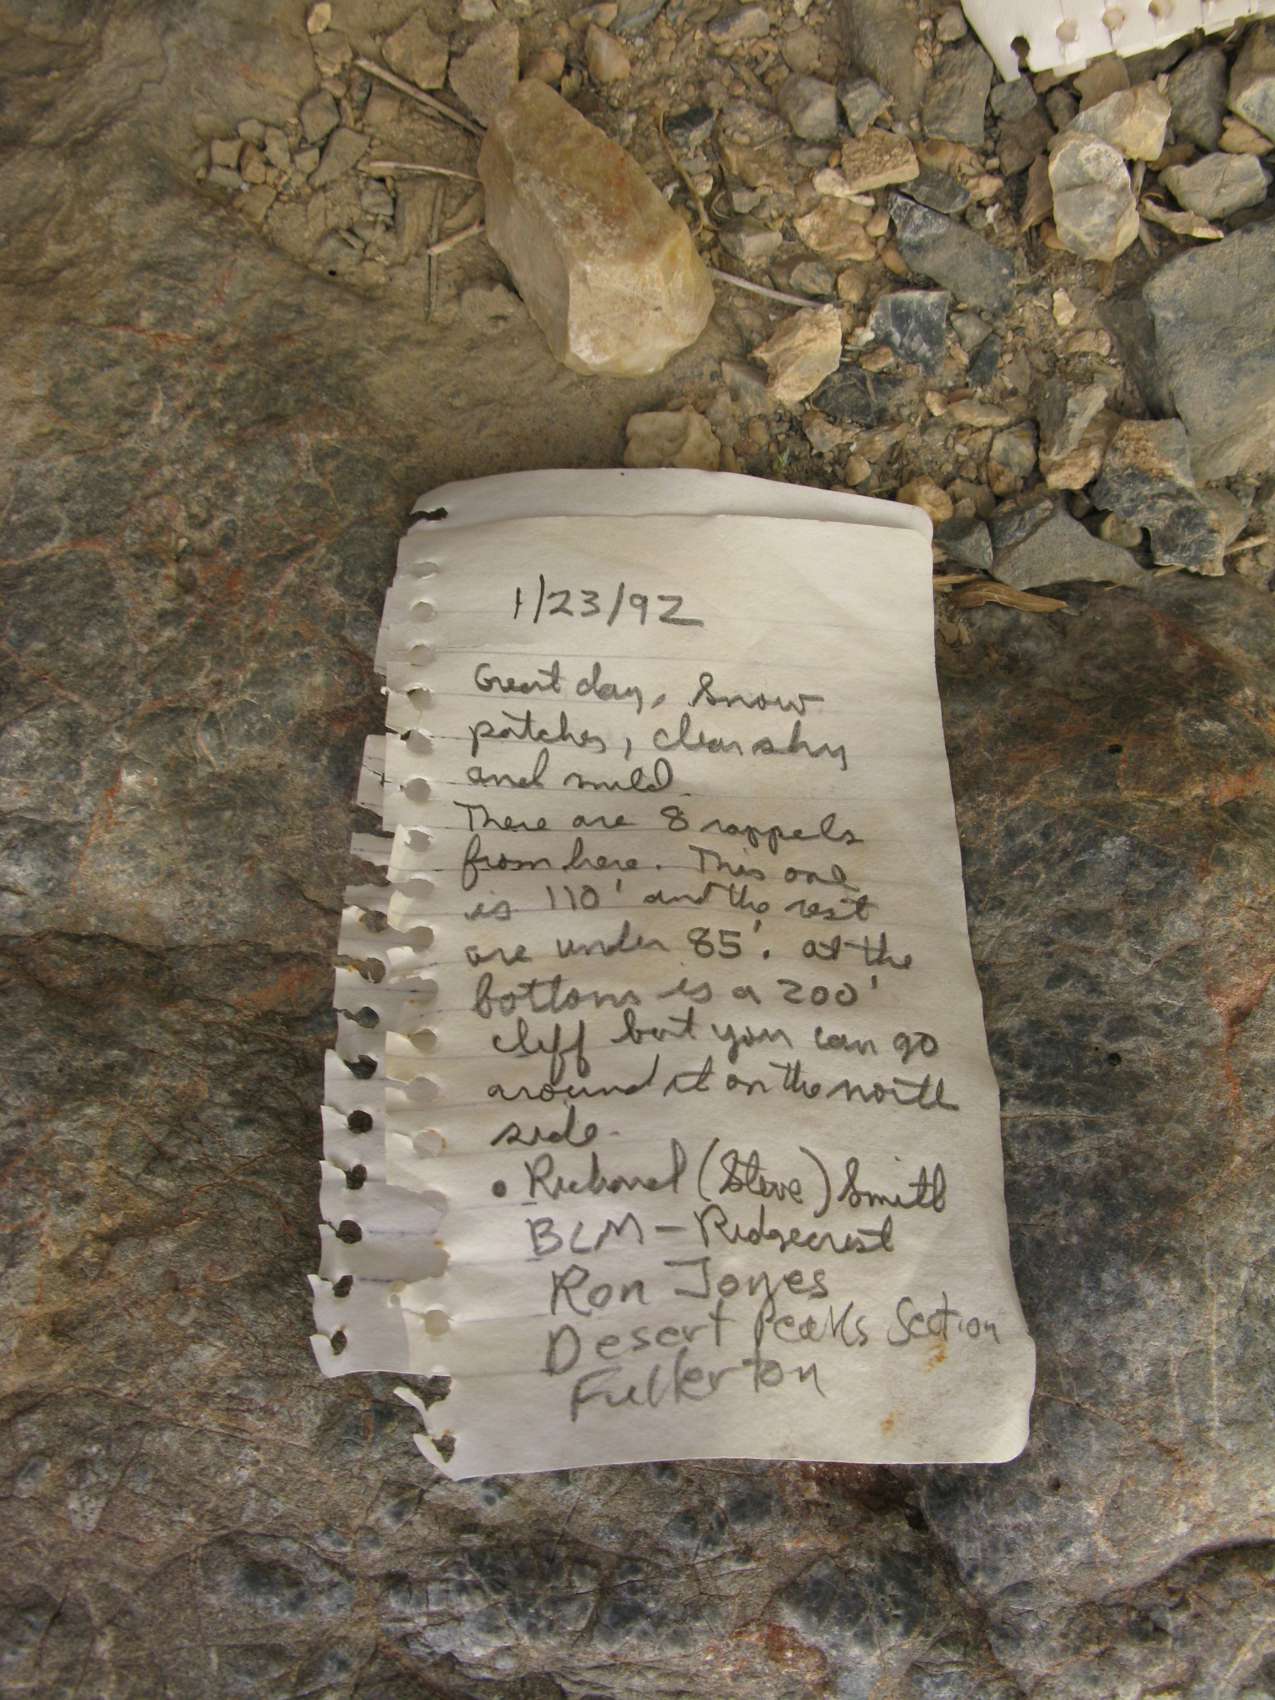 1/23/92
Great day, Snow
patches, clear sky
and mild.
There are 8 rappels
from here. This one
is 110' and the rest
are under 85'. at the
bottom is a 200'
cliff but you can go
around it on the north
side.
• Richard (Steve) Smith
BLM - Ridgecrest
Ron Jones
Desert Peaks Section
Fullerton